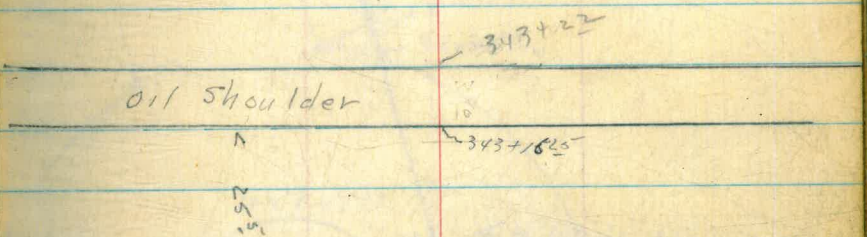 343+22
oil shoulder
343+1625